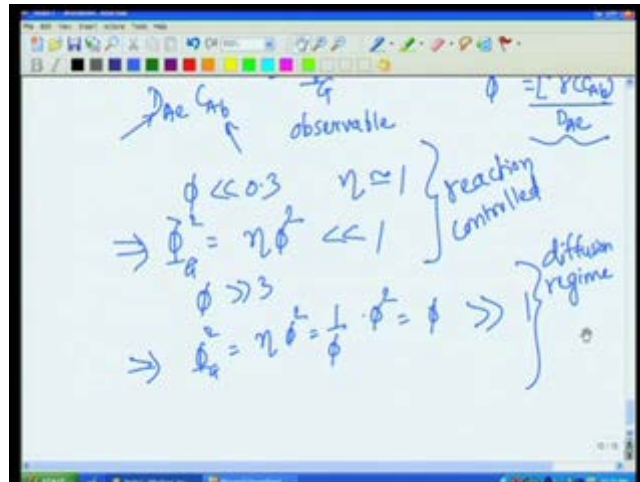 D_Ae C_Ab
Φ_G
observable
φ² = L² r(C_Ab)
D_Ae
φ << 0.3 η ≃ 1
⇒ Φ_G² = η φ² << 1
reaction
controlled
φ >> 3
⇒ Φ_G² = η φ² = 1/φ · φ² = φ >> 1
diffusion
regime